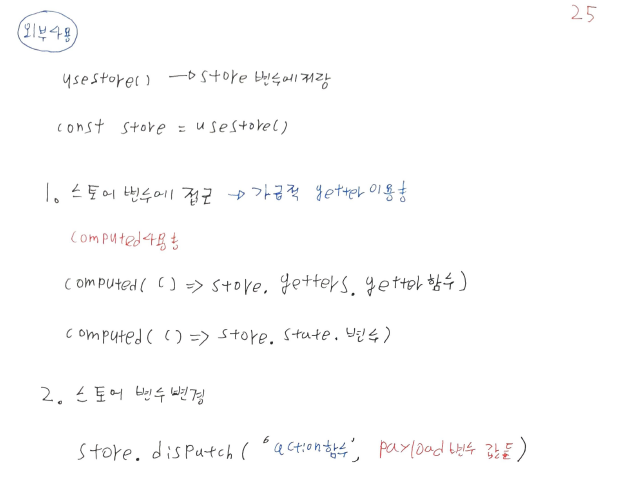 25
외부사용
usestore() → store 변수에 저장
const store = usestore()
1. 스토어 변수에 접근 → 가급적 getter 이용!
computed 사용!
computed( () => store. getters. getter 함수)
computed( () => store. state. 변수)
2. 스토어 변수 변경
store. dispatch( 'action함수', payload 변수 값들)